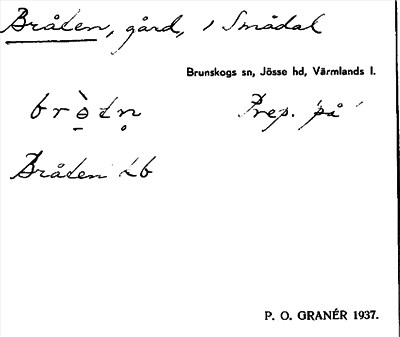 Bråten, gård, i Smådal
Brunskogs sn, Jösse hd, Värmlands l.
brɵ̠̀tn̥ Prep. på
Bråten Lb
P. O. GRANÉR 1937.